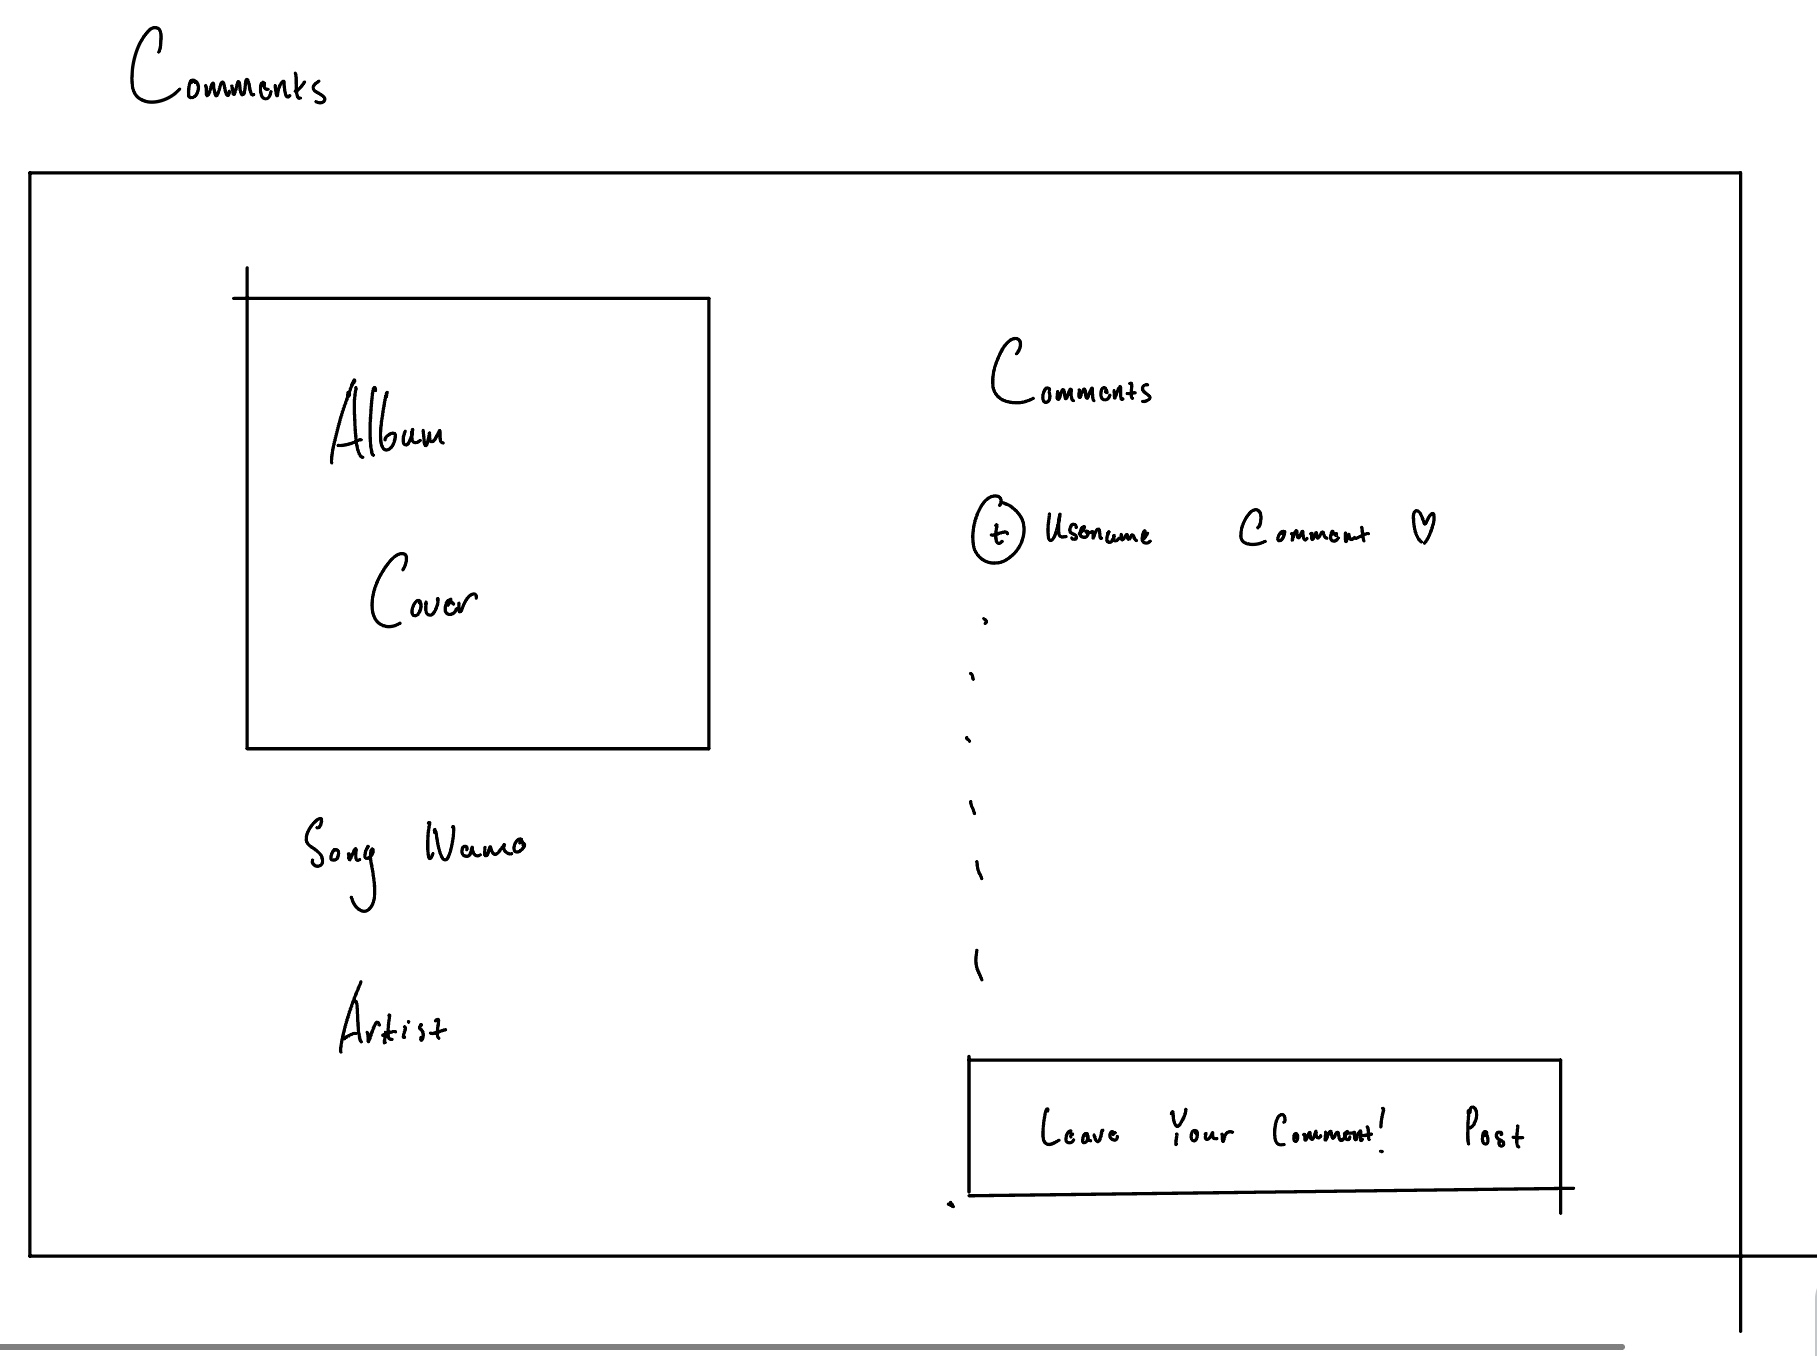 Comments
Album
Cover
Song Name
Artist
Comments
t Username Comment ♡
Leave Your Comment! Post